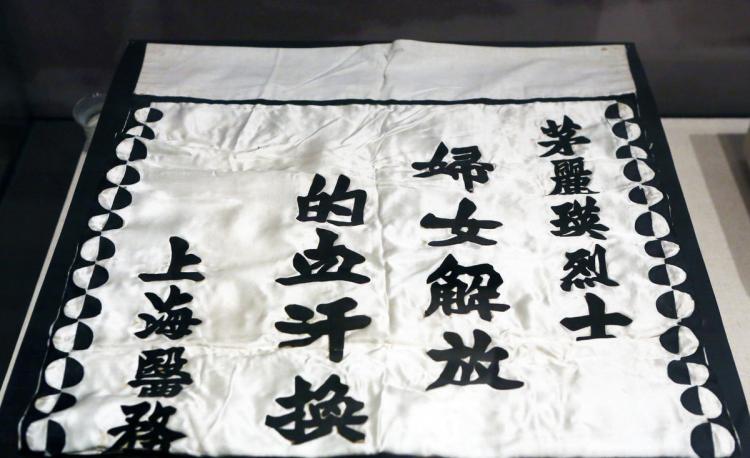 茅麗瑛烈士
婦女解放
的血汗換
上海醫務